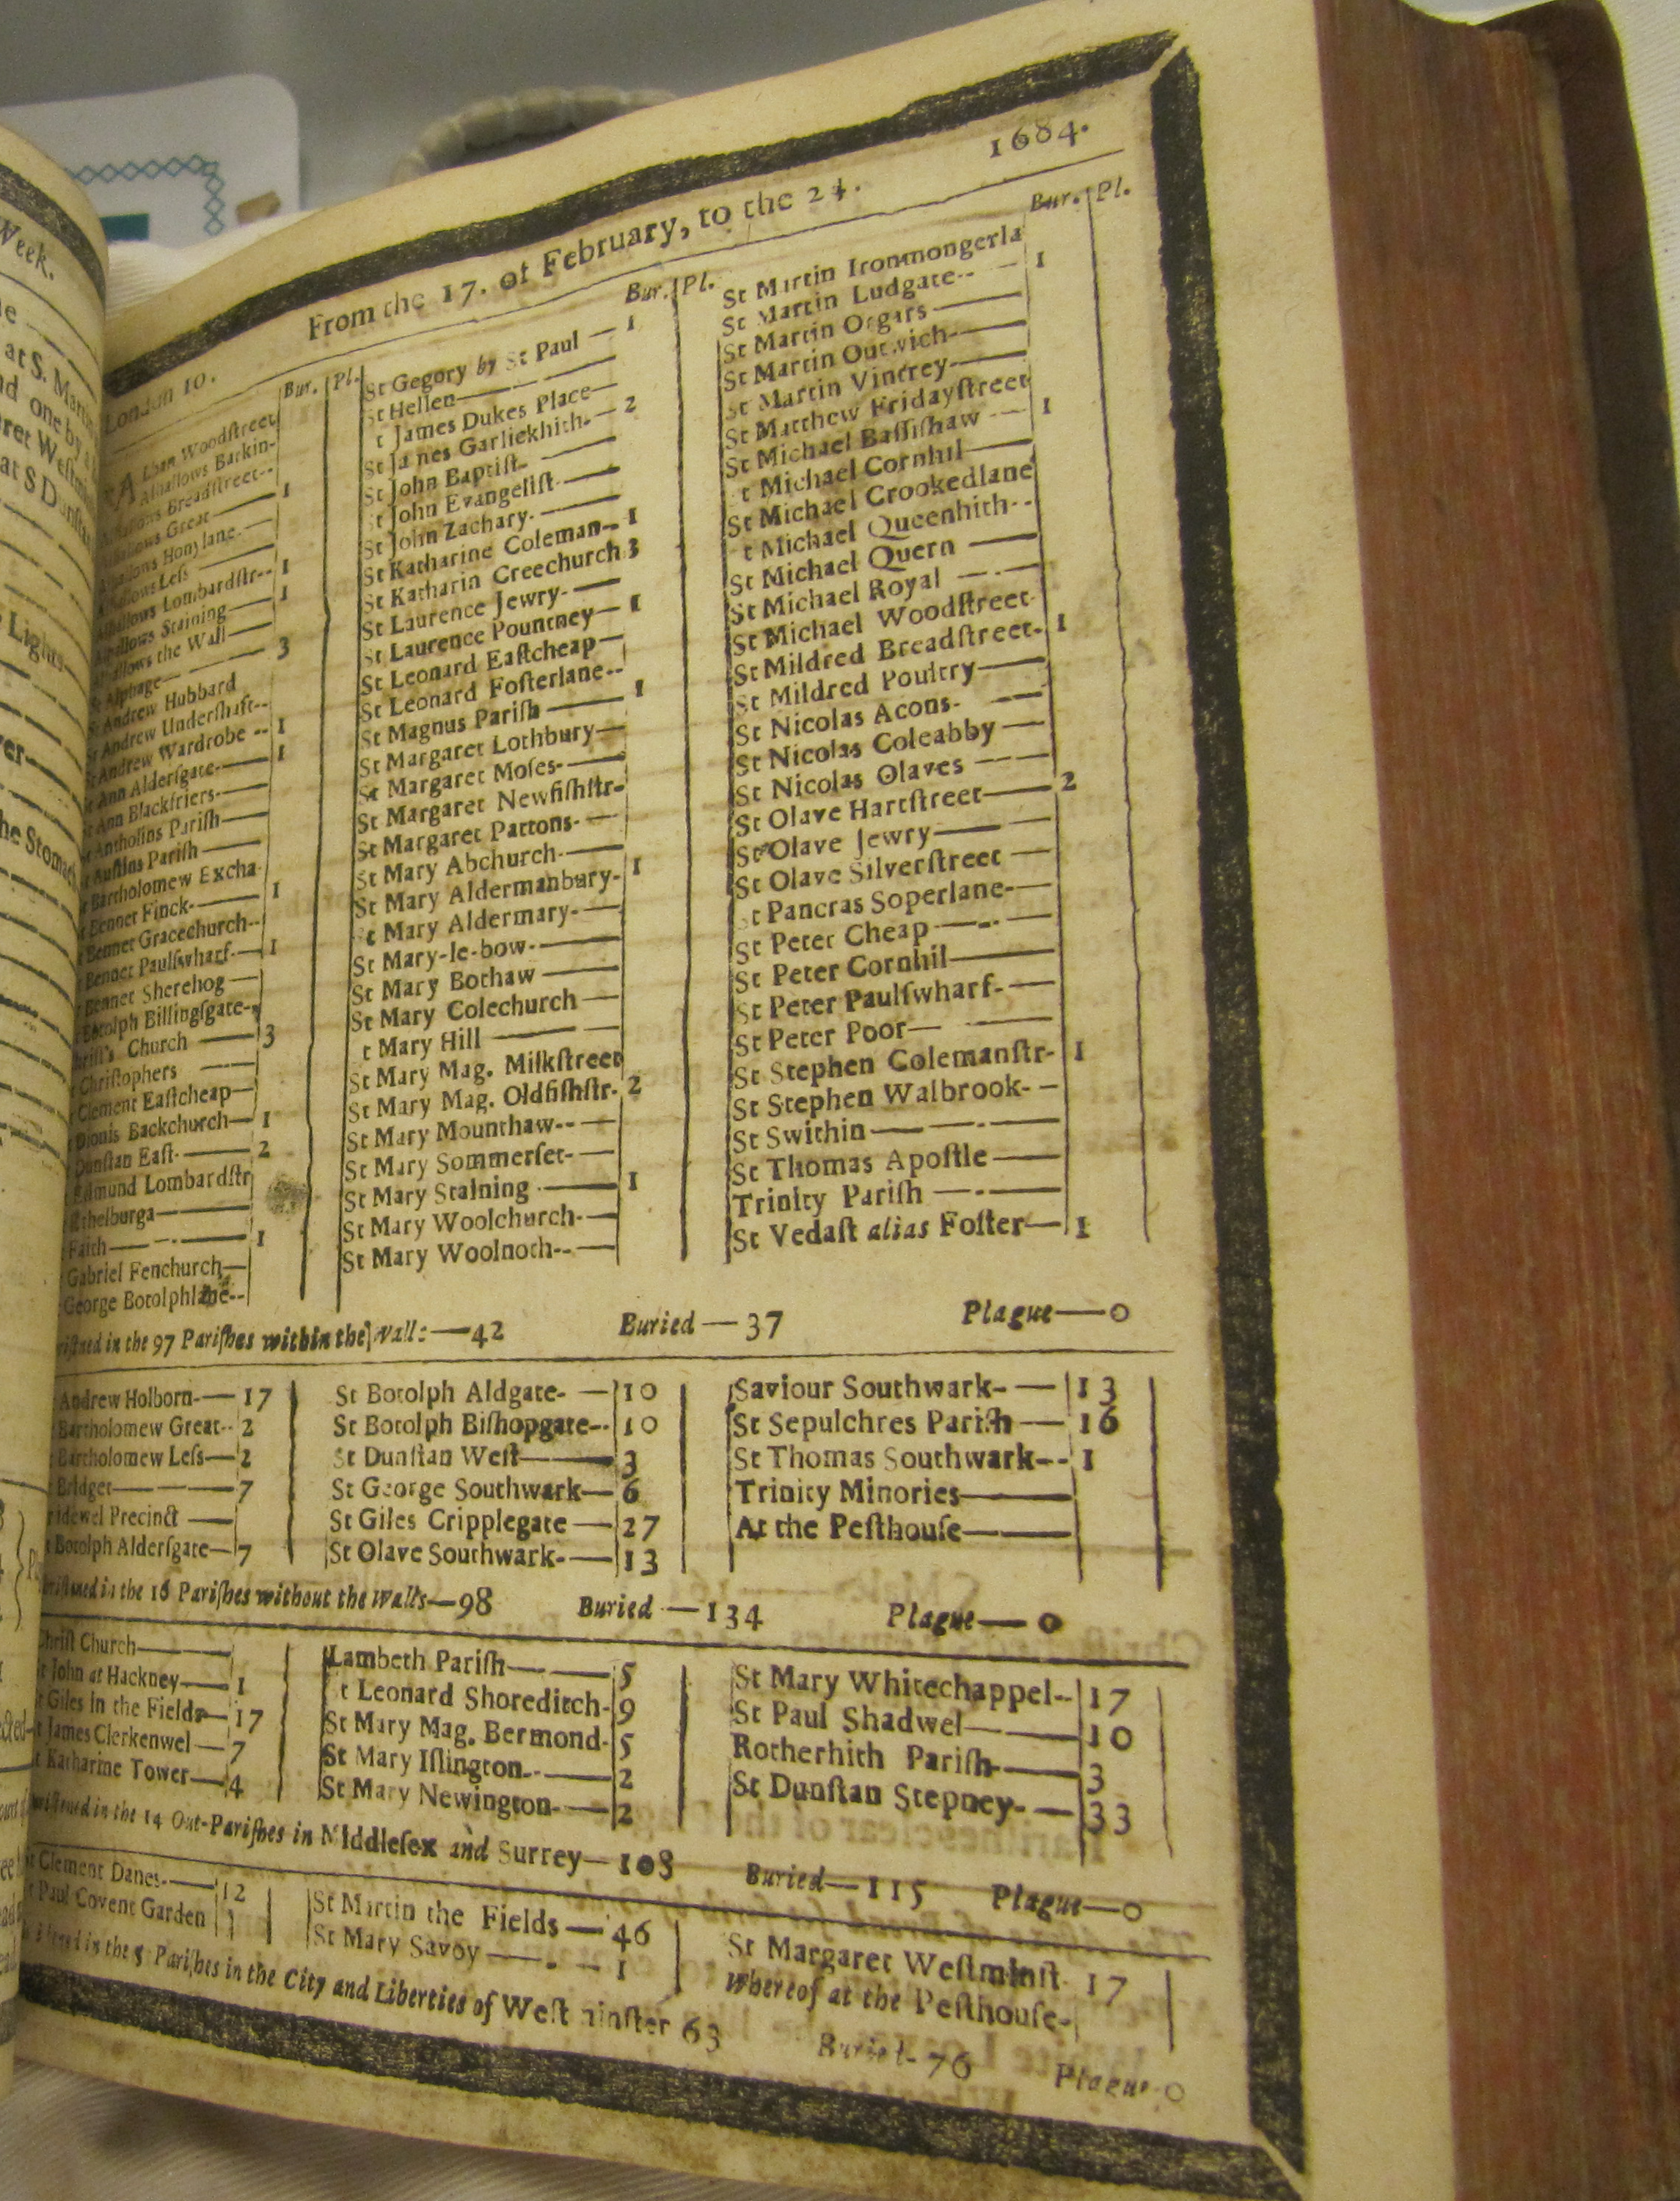 Week.
at S. Marti
Lights
ver
he Stomac
From the 17. of February, to the 24. 1684.
London 10. Bur. Pl.
ALban Woodſtreet
Alhallows Barkin-
Alhallows Breadſtreet--
Alhallows Great— 1
Alhallows Honylane-—
Alhallows Leſs —
Alhallows Lombardſtr-- 1
Alhallows Staining— 1
Alhallows the Wall—
St Alphage—— 3
St Andrew Hubbard
St Andrew Underſhaft--
St Andrew Wardrobe -- 1
St Ann Alderſgate-— 1
St Ann Blackfriers-—
St Antholins Pariſh —
t Auſtins Pariſh —
t Bartholomew Excha-
t Bennet Finck-—— 1
t Bennet Gracechurch--
Bennet Paulſwharf-— 1
Bennet Sherehog —
Botolph Billingſgate-
hriſt's Church —— 3
Chriſtophers ——
Clement Eaſtcheap—
Dionis Backchurch— 1
Dunſtan Eaſt-—— 2
Edmund Lombardſtr
Ethelburga———
Faith——-—— 1
Gabriel Fenchurch—
George Botolphlane--
Bur. Pl.
St Gegory by St Paul — 1
St Hellen———
t James Dukes Place—
St James Garliekhith-— 2
St John Baptiſt-——
St John Evangeliſt-—
St John Zachary-——
St Katharine Coleman-- 1
St Katharin Creechurch 3
St Laurence Jewry-——
St Laurence Pountney— 1
St Leonard Eaſtcheap—
St Leonard Foſterlane--
St Magnus Pariſh —— 1
St Margaret Lothbury—
St Margaret Moſes-——
St Margaret Newfiſhſtr-
St Margaret Pattons-—
St Mary Abchurch-——
St Mary Aldermanbury- 1
St Mary Aldermary-—
St Mary-le-bow-——
St Mary Bothaw ——
St Mary Colechurch —
t Mary Hill ———
St Mary Mag. Milkſtreet
St Mary Mag. Oldfiſhſtr. 2
St Mary Mounthaw--—
St Mary Sommerſet-—
St Mary Staining —— 1
St Mary Woolchurch-—
St Mary Woolnoth--—
Bur. Pl.
St Martin Ironmongerla
St Martin Ludgate--— 1
St Martin Orgars——
St Martin Outwich-——
St Martin Vintrey-——
St Matthew Fridayſtreet
St Michael Baſſiſhaw — 1
t Michael Cornhil——
St Michael Crookedlane
t Michael Queenhith--
St Michael Quern ——
St Michael Royal —-—
St Michael Woodſtreet-
St Mildred Breadſtreet- 1
St Mildred Poultry——
St Nicolas Acons- —
St Nicolas Coleabby —
St Nicolas Olaves ——
St Olave Hartſtreet—— 2
St Olave Jewry———
St Olave Silverſtreet —
St Pancras Soperlane-—
St Peter Cheap —-—
St Peter Cornhil———
St Peter Paulſwharf-—
St Peter Poor— ——
St Stephen Colemanſtr- 1
St Stephen Walbrook- –
St Swithin——-——
St Thomas Apoſtle——
Trinity Pariſh —-——
St Vedaſt alias Foſter— 1
riſtned in the 97 Pariſhes within the Walls—42 Buried—37 Plague—0
Andrew Holborn-— 17
Bartholomew Great-- 2
Bartholomew Leſs— 2
Bridget——— 7
ridewel Precinct —
t Botolph Alderſgate— 7
St Botolph Aldgate- — 10
St Botolph Biſhopgate-- 10
St Dunſtan Weſt—— 3
St George Southwark— 6
St Giles Cripplegate — 27
St Olave Southwark-— 13
Saviour Southwark- — 13
St Sepulchres Pariſh — 16
St Thomas Southwark-- 1
Trinity Minories———
At the Peſthouſe———
riſtned in the 16 Pariſhes without the Walls—98 Buried —134 Plague—0
Chriſt Church———
St John at Hackney— 1
St Giles in the Fields— 17
t James Clerkenwel — 7
t Katharine Tower— 4
Lambeth Pariſh—— 5
t Leonard Shoreditch- 9
St Mary Mag. Bermond- 5
St Mary Iſlington--— 2
St Mary Newington-— 2
St Mary Whitechappel-- 17
St Paul Shadwel—— 10
Rotherhith Pariſh-—— 3
St Dunſtan Stepney- — 33
riſtened in the 14 Out-Pariſhes in Middleſex and Surrey—108 Buried—115 Plague—0
St Clement Danes-— 12
t Paul Covent Garden
St Martin the Fields — 46
St Mary Savoy ——-— 1
St Margaret Weſtminſt- 17
Whereof at the Peſthouſe-
in the 5 Pariſhes in the City and Liberties of Weſtminſter 63 Buried- 76 Plague-0